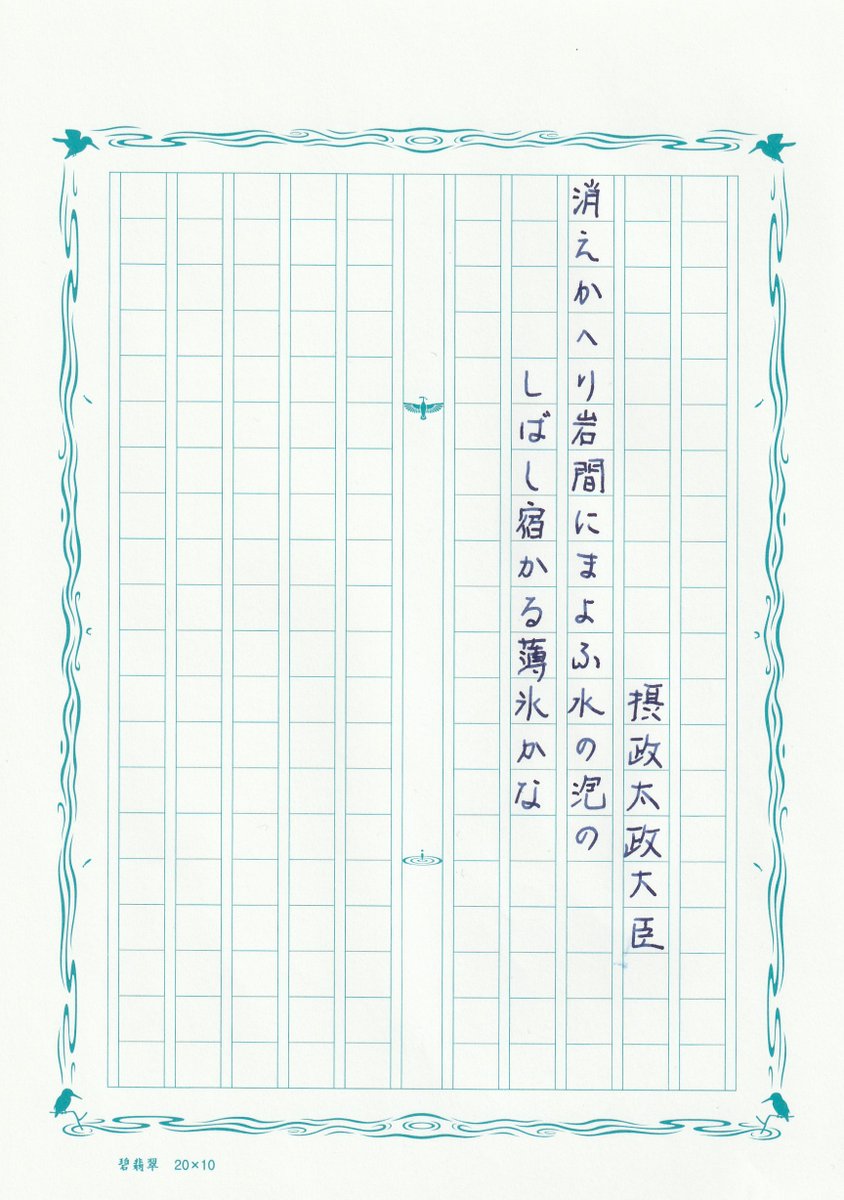 摂政太政大臣
消えかへり岩間にまよふ水の泡の
しばし宿かる薄氷かな
碧翡翠 20×10